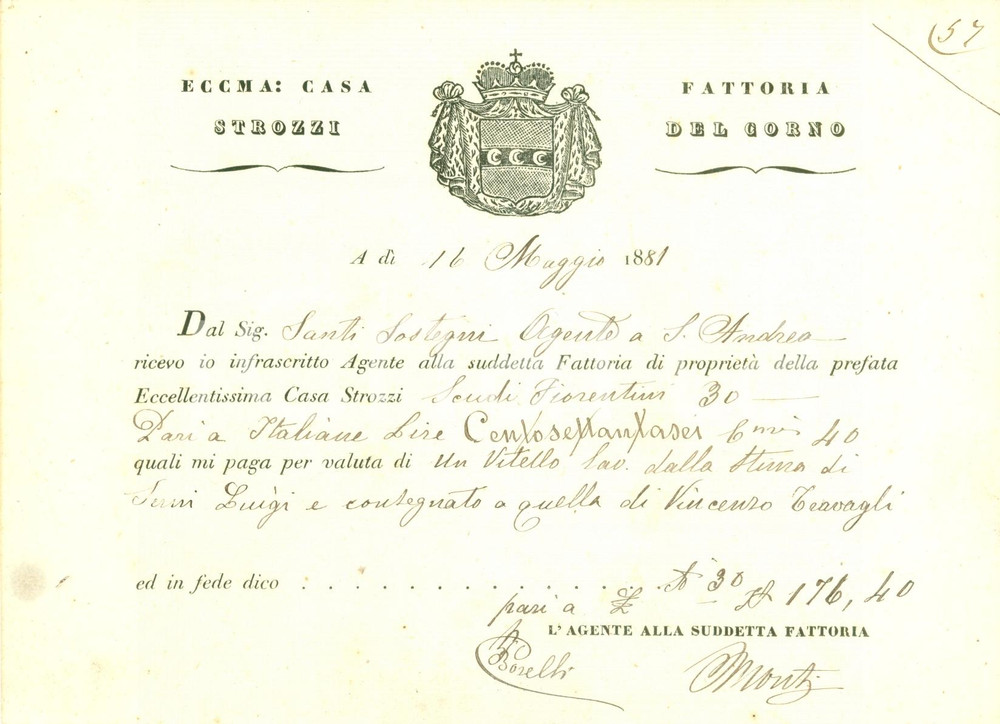 57
ECCMA: CASA
STROZZI
FATTORIA
DEL CORNO
A dì 16 Maggio 1881
Dal Sig. Santi Sostegni Agente a S. Andrea
ricevo io infrascritto Agente alla suddetta Fattoria di proprietà della prefata
Eccellentissima Casa Strozzi Scudi Fiorentini 30
Pari a Italiane Lire Centosettantasei C.mi 40
quali mi paga per valuta di un Vitello lav. dalla stima di
Luigi e consegnato a quella di Vincenzo Travagli
ed in fede dico . . . . . . . . . . . . . . 30
pari a £ 176,40
L'AGENTE ALLA SUDDETTA FATTORIA
Borelli Monti